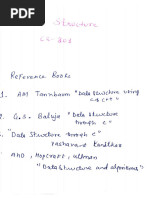 Structure
CS-302
Reference Books
1. AM Tannbaum "Data Structure using
C & C++"
2. G.S. Baluja "Data Structure
through c"
"Data Structure through c"
Yashavant Kanetkar
AHO, Hopcroft, Ullman
"Data Structure and algorithms"